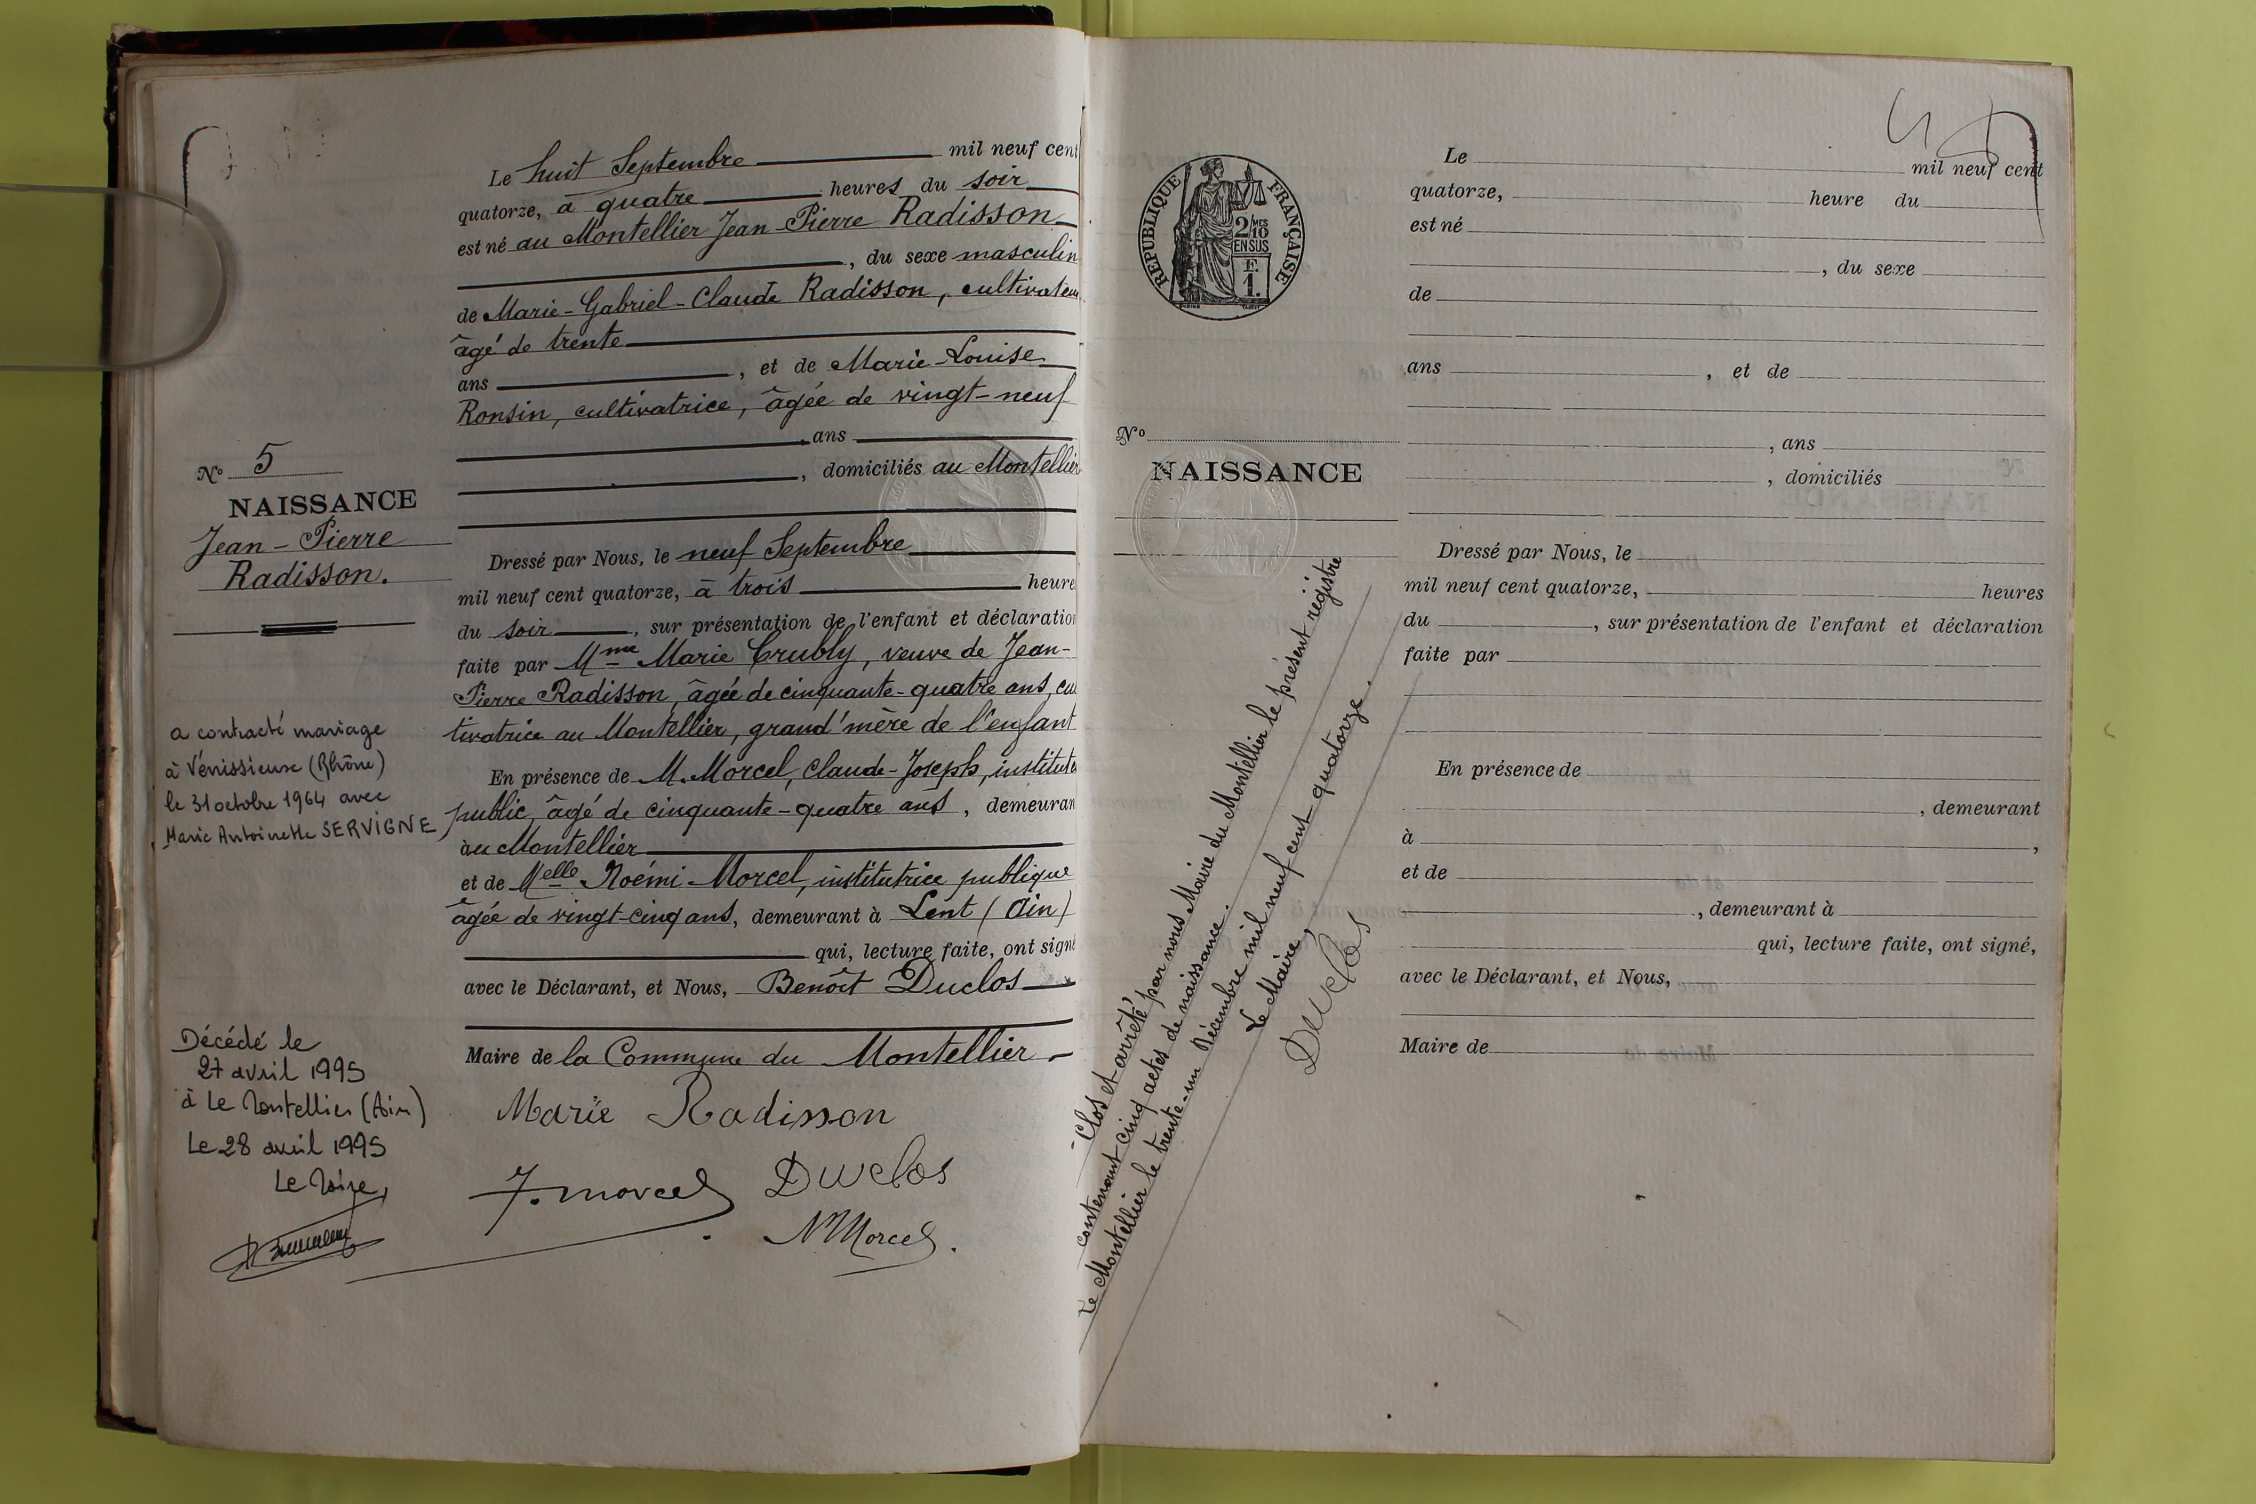 Le huit Septembre mil neuf cent
quatorze, à quatre heures du soir
est né au Montellier Jean-Pierre Radisson
, du sexe masculin
de Marie-Gabriel-Claude Radisson, cultivateu
âgé de trente
ans , et de Marie-Louise
Ronsin, cultivatrice, âgée de vingt-neuf
ans
, domiciliés au Montellier
Nº 5
NAISSANCE
Jean-Pierre
Radisson.
Dressé par Nous, le neuf Septembre
mil neuf cent quatorze, à trois heure
du soir , sur présentation de l'enfant et déclaration
faite par Mme Marie Crubly, veuve de Jean-
Pierre Radisson, âgée de cinquante-quatre ans, cul
tivatrice au Montellier, grand'mère de l'enfant
En présence de M. Morcel, Claude-Joseph, institute
public, âgé de cinquante-quatre ans, demeuran
au Montellier
et de Melle Noémi Morcel, institutrice publique
âgée de vingt-cinq ans, demeurant à Lent (Ain)
qui, lecture faite, ont signé
avec le Déclarant, et Nous, Benoît Duclos
Maire de la Commune du Montellier
Marie Radisson
J. Morcel
Duclos
N Morcel.
a contracté mariage
à Vénissieux (Rhône)
le 31 octobre 1964 avec
Marie Antoinette SERVIGNE
Décédé le
27 avril 1995
à Le Montellier (Ain)
Le 28 avril 1995
Le Maire,
REPUBLIQUE FRANÇAISE
2/10 MES
EN SUS
F.
1.
Nº
NAISSANCE
Clos et arrêté par nous Maire du Montellier le présent registre
contenant cinq actes de naissance.
Le Montellier le trente-un Décembre mil neuf cent quatorze.
Le Maire,
Duclos
Le mil neuf cent
quatorze, heure du
est né
, du sexe
de
ans , et de
, ans
, domiciliés
Dressé par Nous, le
mil neuf cent quatorze, heures
du , sur présentation de l'enfant et déclaration
faite par
En présence de
, demeurant
à ,
et de
, demeurant à
qui, lecture faite, ont signé,
avec le Déclarant, et Nous,
Maire de